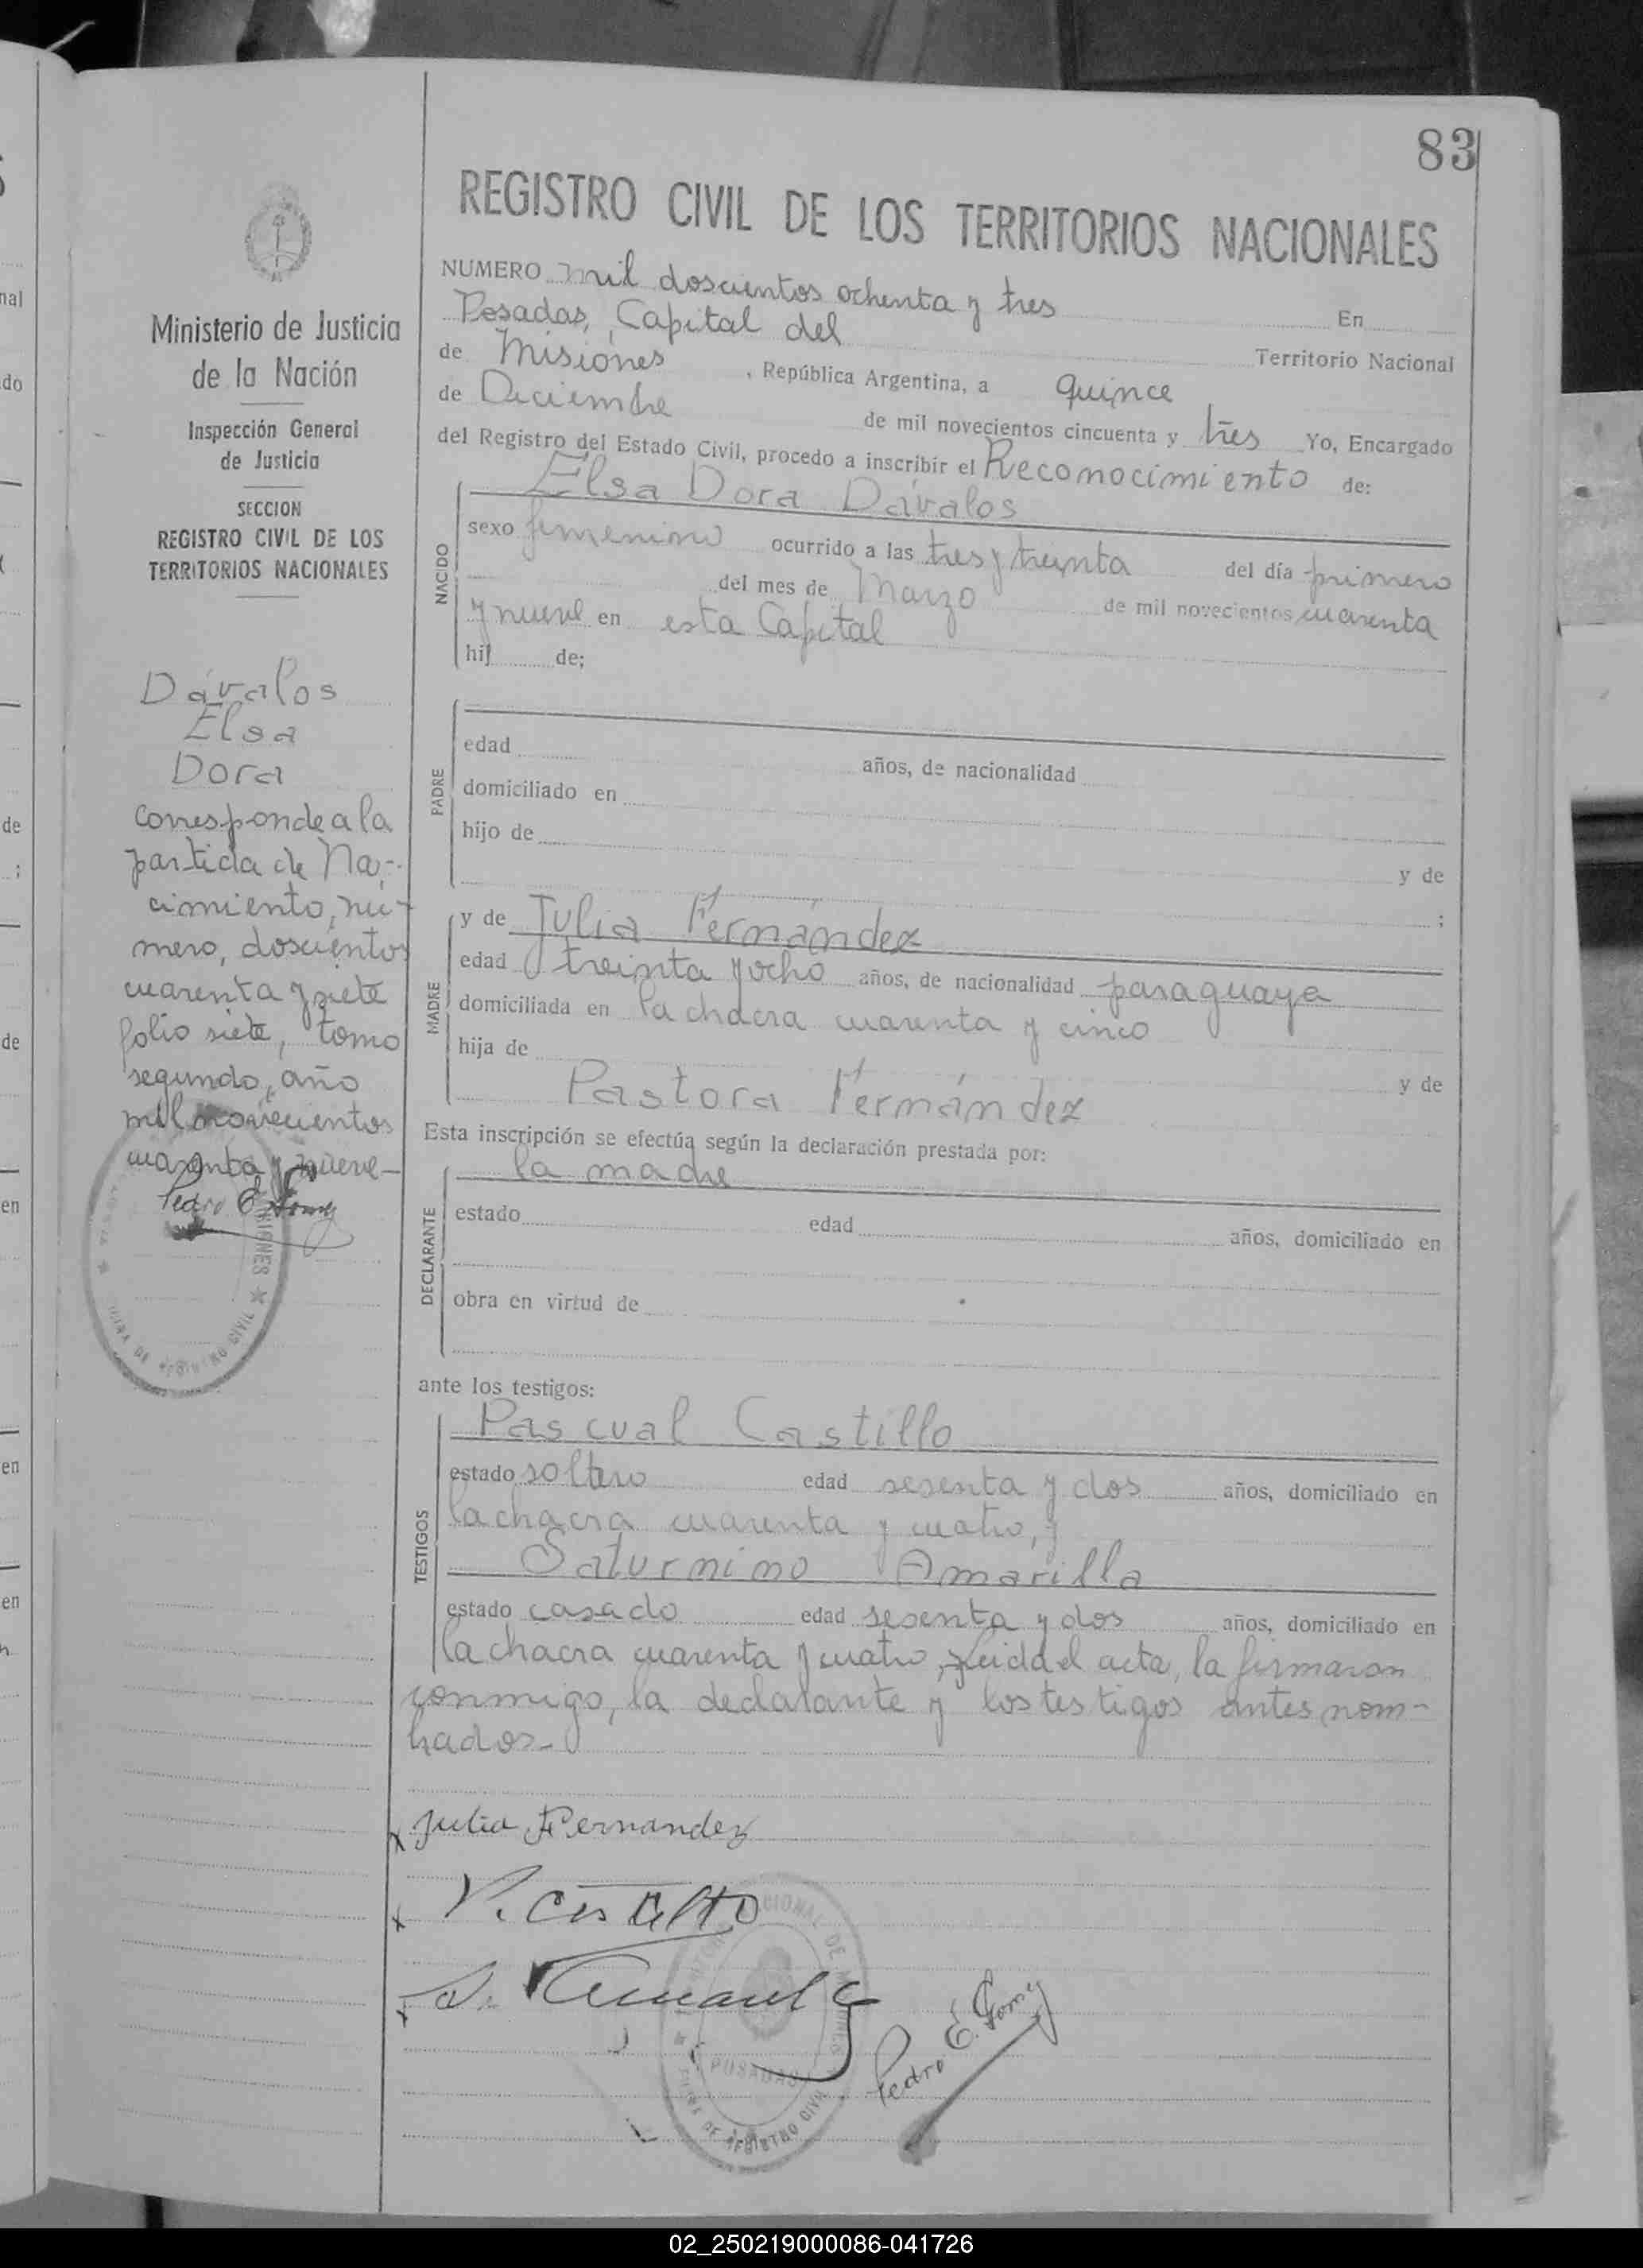 83
REGISTRO CIVIL DE LOS TERRITORIOS NACIONALES
NUMERO mil doscientos ochenta y tres En
Posadas, Capital del Territorio Nacional
de Misiones, República Argentina, a quince
de Diciembre de mil novecientos cincuenta y tres Yo, Encargado
del Registro del Estado Civil, procedo a inscribir el Reconocimiento de:
Elsa Dora Dávalos
NACIDO
sexo femenino ocurrido a las tres y treinta del día primero
del mes de Marzo de mil novecientos cuarenta
y nueve en esta Capital
hij de;
PADRE
edad años, de nacionalidad
domiciliado en
hijo de
y de
;
MADRE
y de Julia Fernández
edad treinta y ocho años, de nacionalidad paraguaya
domiciliada en la chacra cuarenta y cinco
hija de
y de
Pastora Fernández
Esta inscripción se efectúa según la declaración prestada por:
la madre
DECLARANTE
estado edad años, domiciliado en
obra en virtud de
ante los testigos:
TESTIGOS
Pascual Castillo
estado soltero edad sesenta y dos años, domiciliado en
la chacra cuarenta y cuatro, y
Saturnino Amarilla
estado casado edad sesenta y dos años, domiciliado en
la chacra cuarenta y cuatro, leida el acta, la firmaron
conmigo, la declarante y los testigos antes nom-
brados.-
Julia Fernandez
Pedro E. Gomez
POSADAS
DE REGISTRO CIVIL
Ministerio de Justicia
de la Nación
Inspección General
de Justicia
SECCION
REGISTRO CIVIL DE LOS
TERRITORIOS NACIONALES
Dávalos
Elsa
Dora
corresponde a la
partida de Na-
cimiento, nú-
mero, doscientos
cuarenta y siete
folio siete, tomo
segundo, año
mil novecientos
cuarenta y nueve-
Pedro E. Gomez
nal
do
de
;
de
en
en
en
02_250219000086-041726